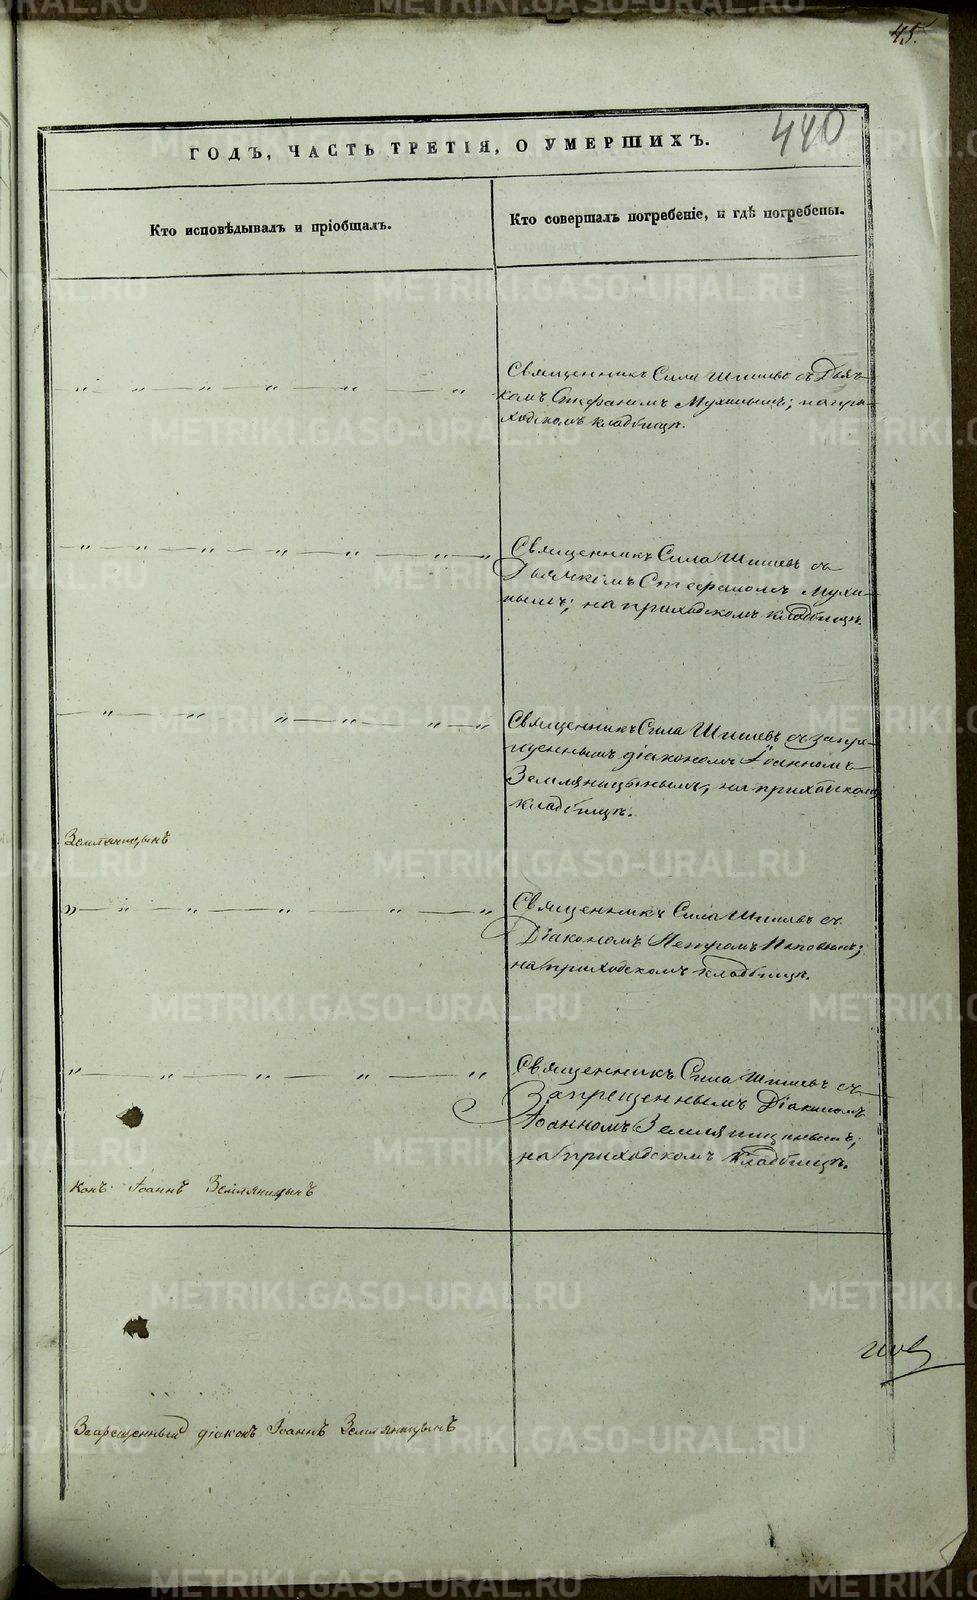 45.
440
ГОДЪ, ЧАСТЬ ТРЕТІЯ, О УМЕРШИХЪ.
Кто исповѣдывалъ и пріобщалъ.
Кто совершалъ погребеніе, и гдѣ погребены.
Священникъ Сила Шишевъ съ Дьяч-
комъ Стефаномъ Мухинымъ; на при-
ходскомъ кладбищѣ.
Священникъ Сила Шишевъ съ
Дьячкомъ Стефаномъ Мухи-
нымъ; на приходскомъ кладбищѣ.
Священникъ Сила Шишевъ съ запре-
щеннымъ діакономъ Іоанномъ
Земляницынымъ, на приходскомъ
кладбищѣ.
Земляницынъ
Священникъ Сила Шишевъ съ
Діакономъ Петромъ Поповымъ;
на приходскомъ кладбищѣ.
Священникъ Сила Шишевъ съ
Запрещеннымъ Діакономъ
Іоанномъ Земляницынымъ;
на приходскомъ кладбищѣ.
конъ Іоаннъ Земляницынъ
Запрещенный діаконъ Іоаннъ Земляницынъ
METRIKI.GASO-URAL.RU